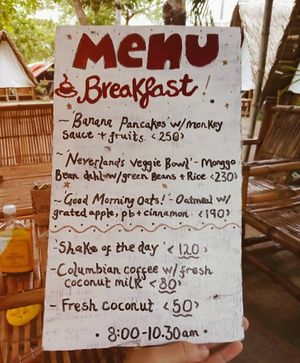 MENU
Breakfast!
~ 'Banana Pancakes' w/ monkey
sauce + fruits <250>
~ 'Neverland's Veggie Bowl' - Monggo
Bean dahl w/green Beans + Rice <230>
~ 'Good Morning Oats!' - Oatmeal w/
grated apple, pb + cinnamon <190>
- 'Shake of the day' <120>
- Columbian coffee w/ fresh
coconut milk <80>
- Fresh coconut <50>
• 8:00-10:30am •